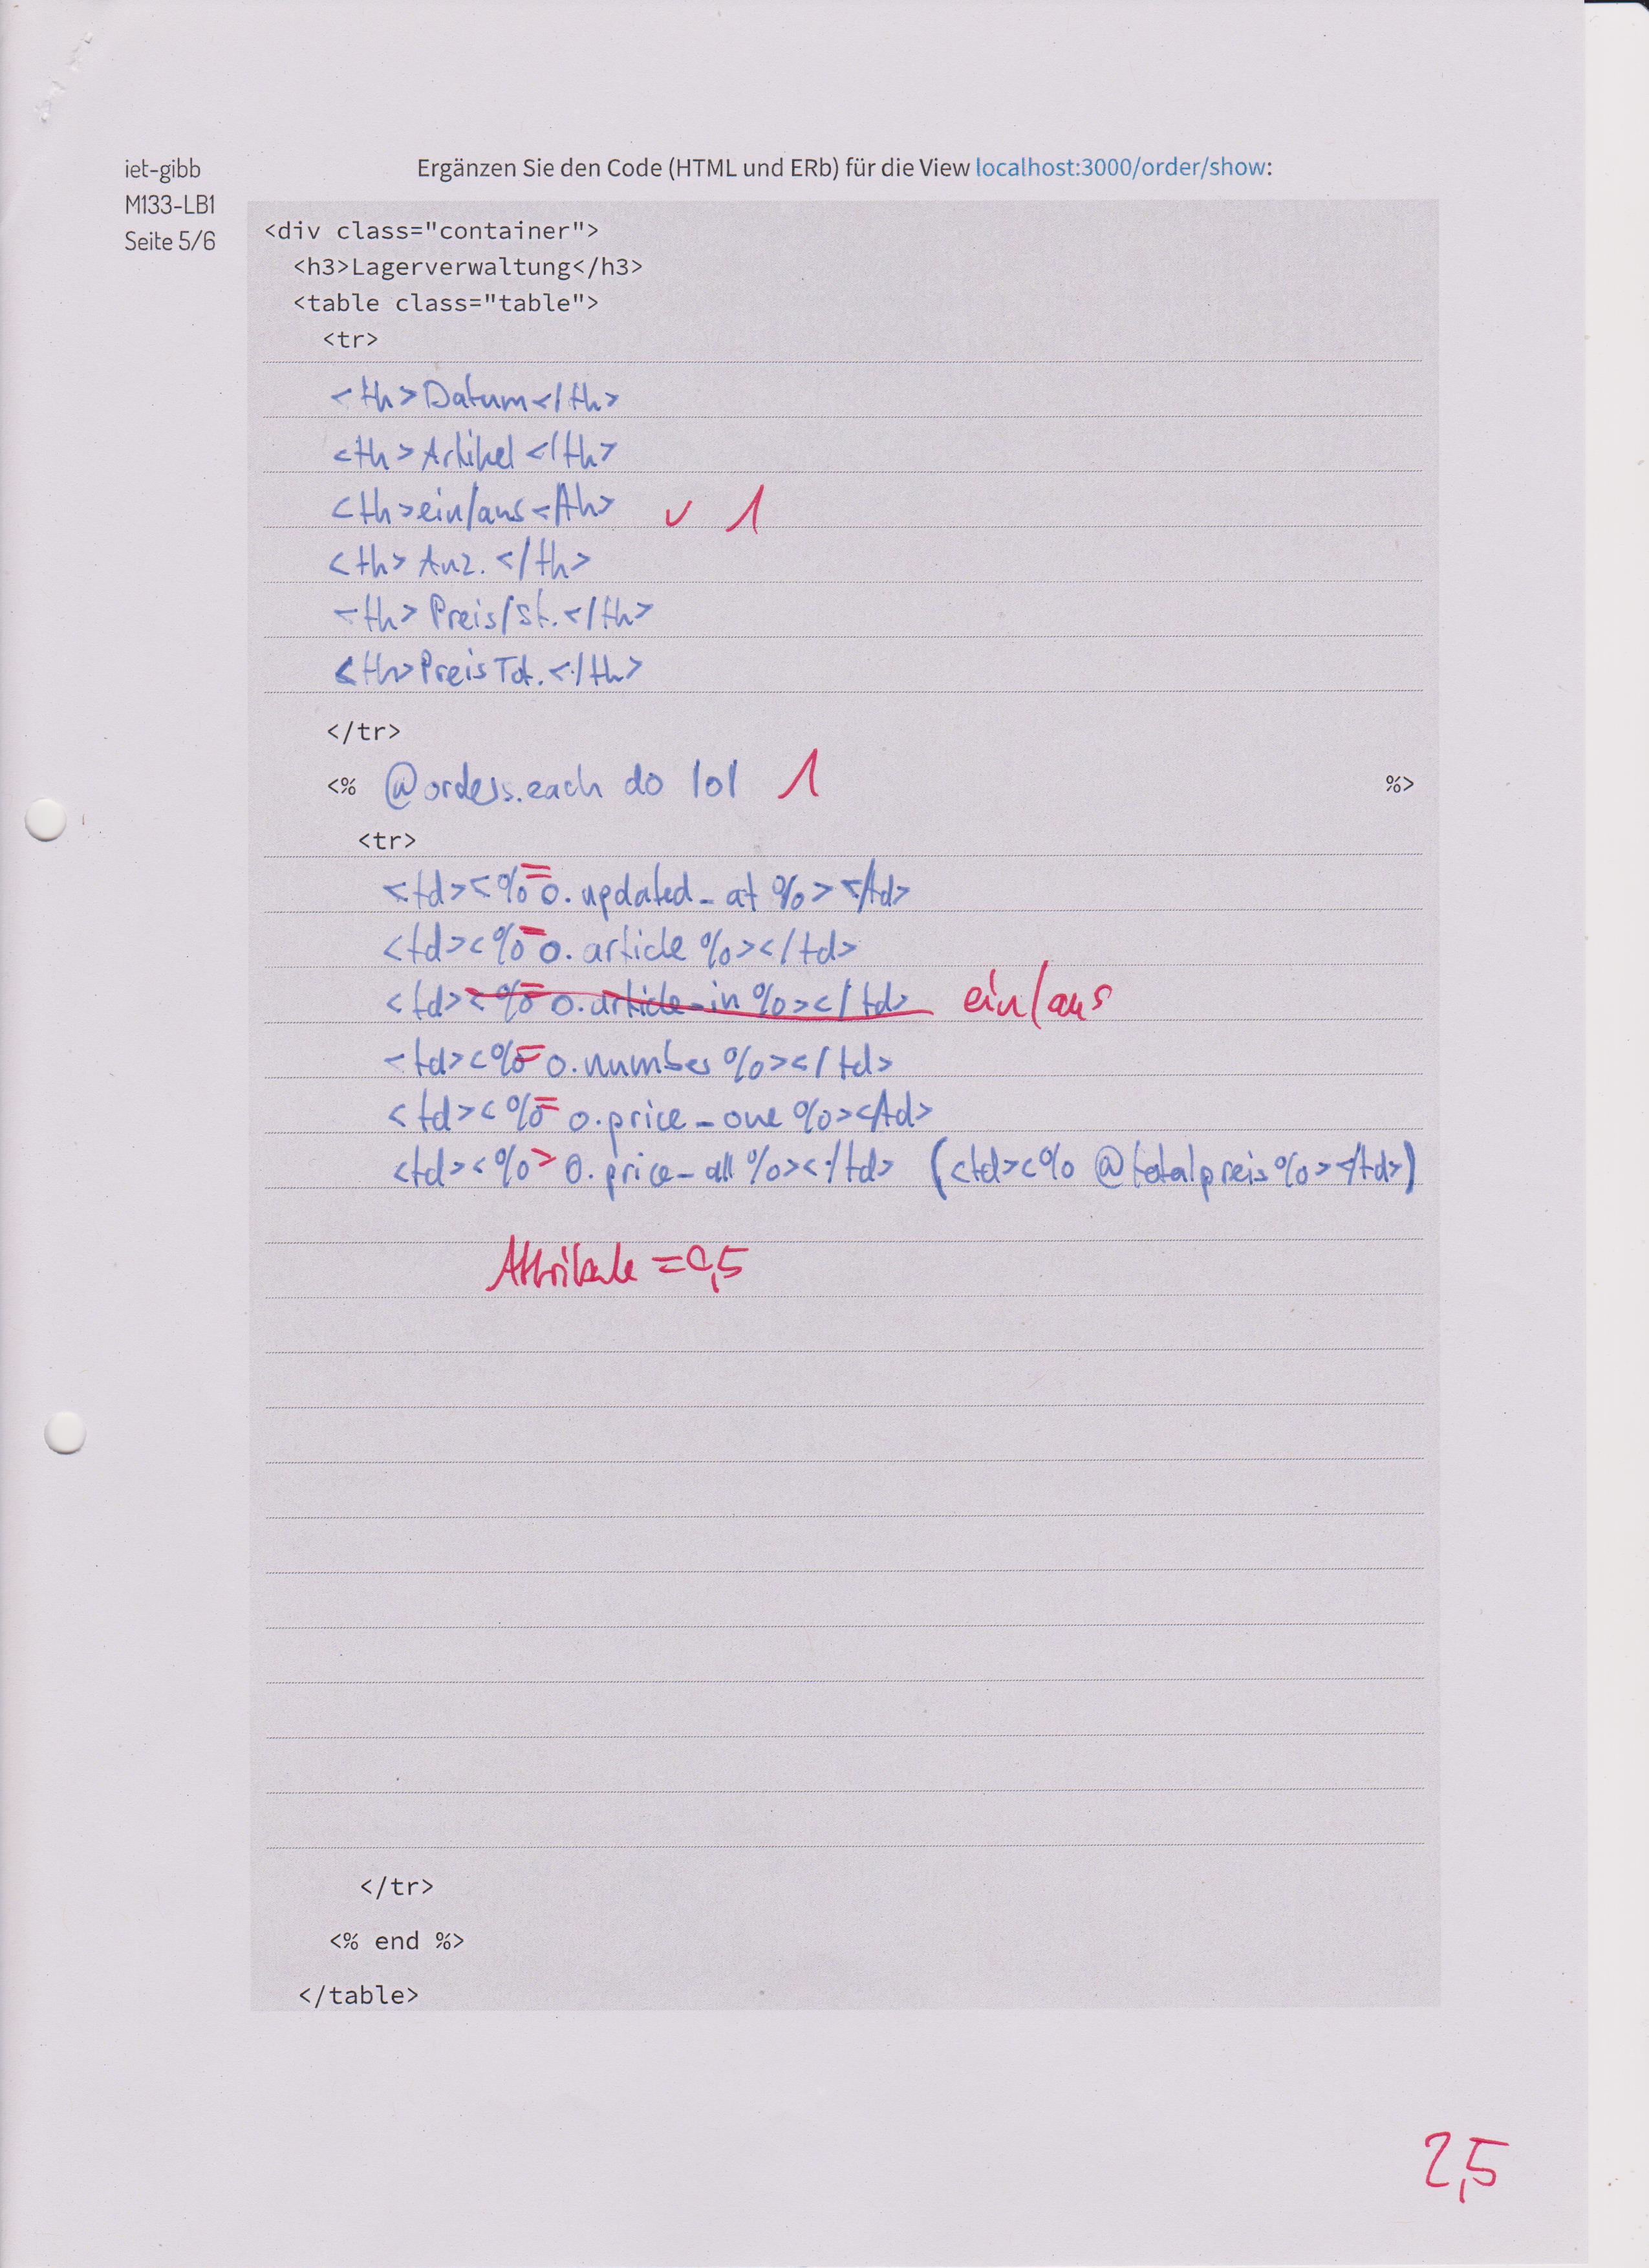 iet-gibb
M133-LB1
Seite 5/6
Ergänzen Sie den Code (HTML und ERb) für die View localhost:3000/order/show:
<div class="container">
<h3>Lagerverwaltung</h3>
<table class="table">
<tr>
<th>Datum</th>
<th>Artikel</th>
<th>ein/aus</th> ✓ 1
<th>Anz.</th>
<th>Preis/St.</th>
<th>Preis Tot.</th>
</tr>
<% @orders.each do |o| 1 %>
<tr>
<td><%= o.updated_at %></td>
<td><%= o.article %></td>
<td><%= o.article_in %></td> ein/aus
<td><%= o.number %></td>
<td><%= o.price_one %></td>
<td><%= o.price_all %></td> (<td><% @totalpreis %></td>)
Attribute = 0,5
</tr>
<% end %>
</table>
2,5